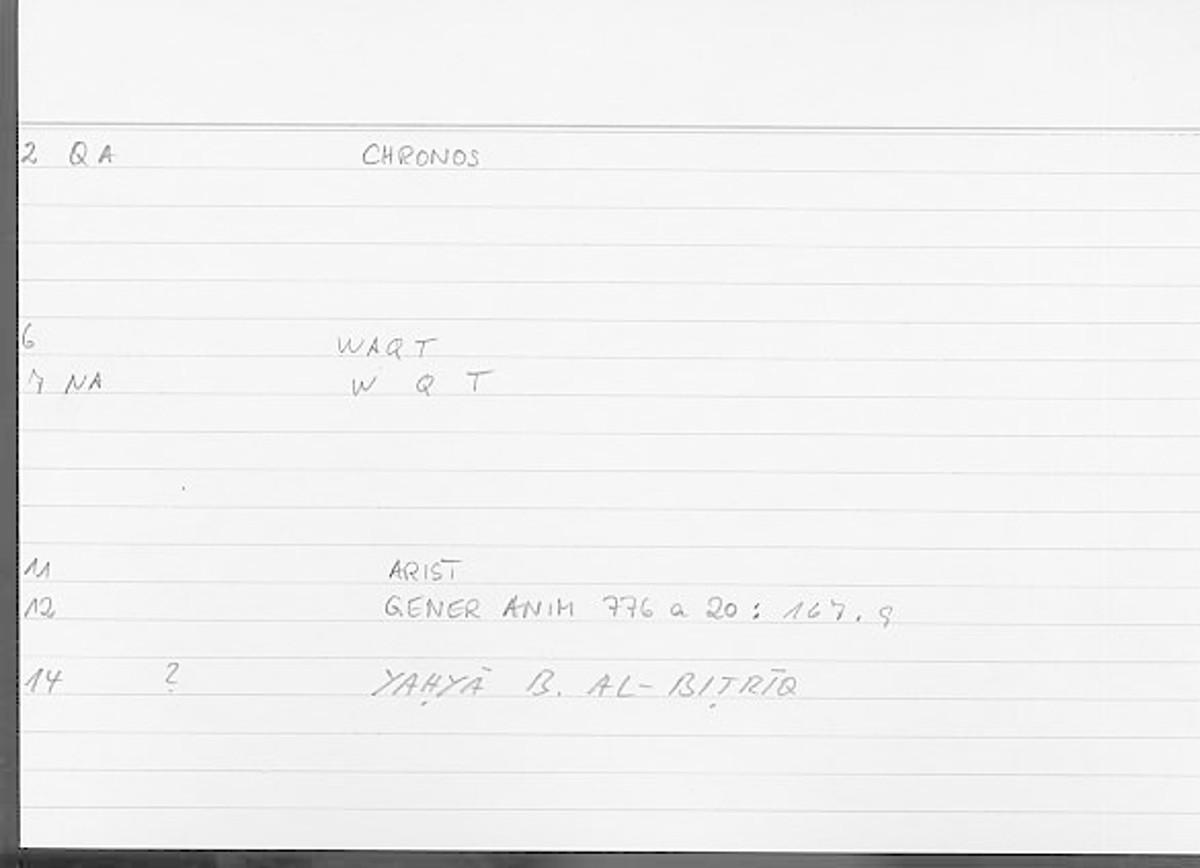 2 QA CHRONOS
6 WAQT
7 NA W Q T
11 ARIST
12 GENER ANIM 776 a 20 : 167.9
14 ? YAḤYĀ B. AL-BIṬRĪQ